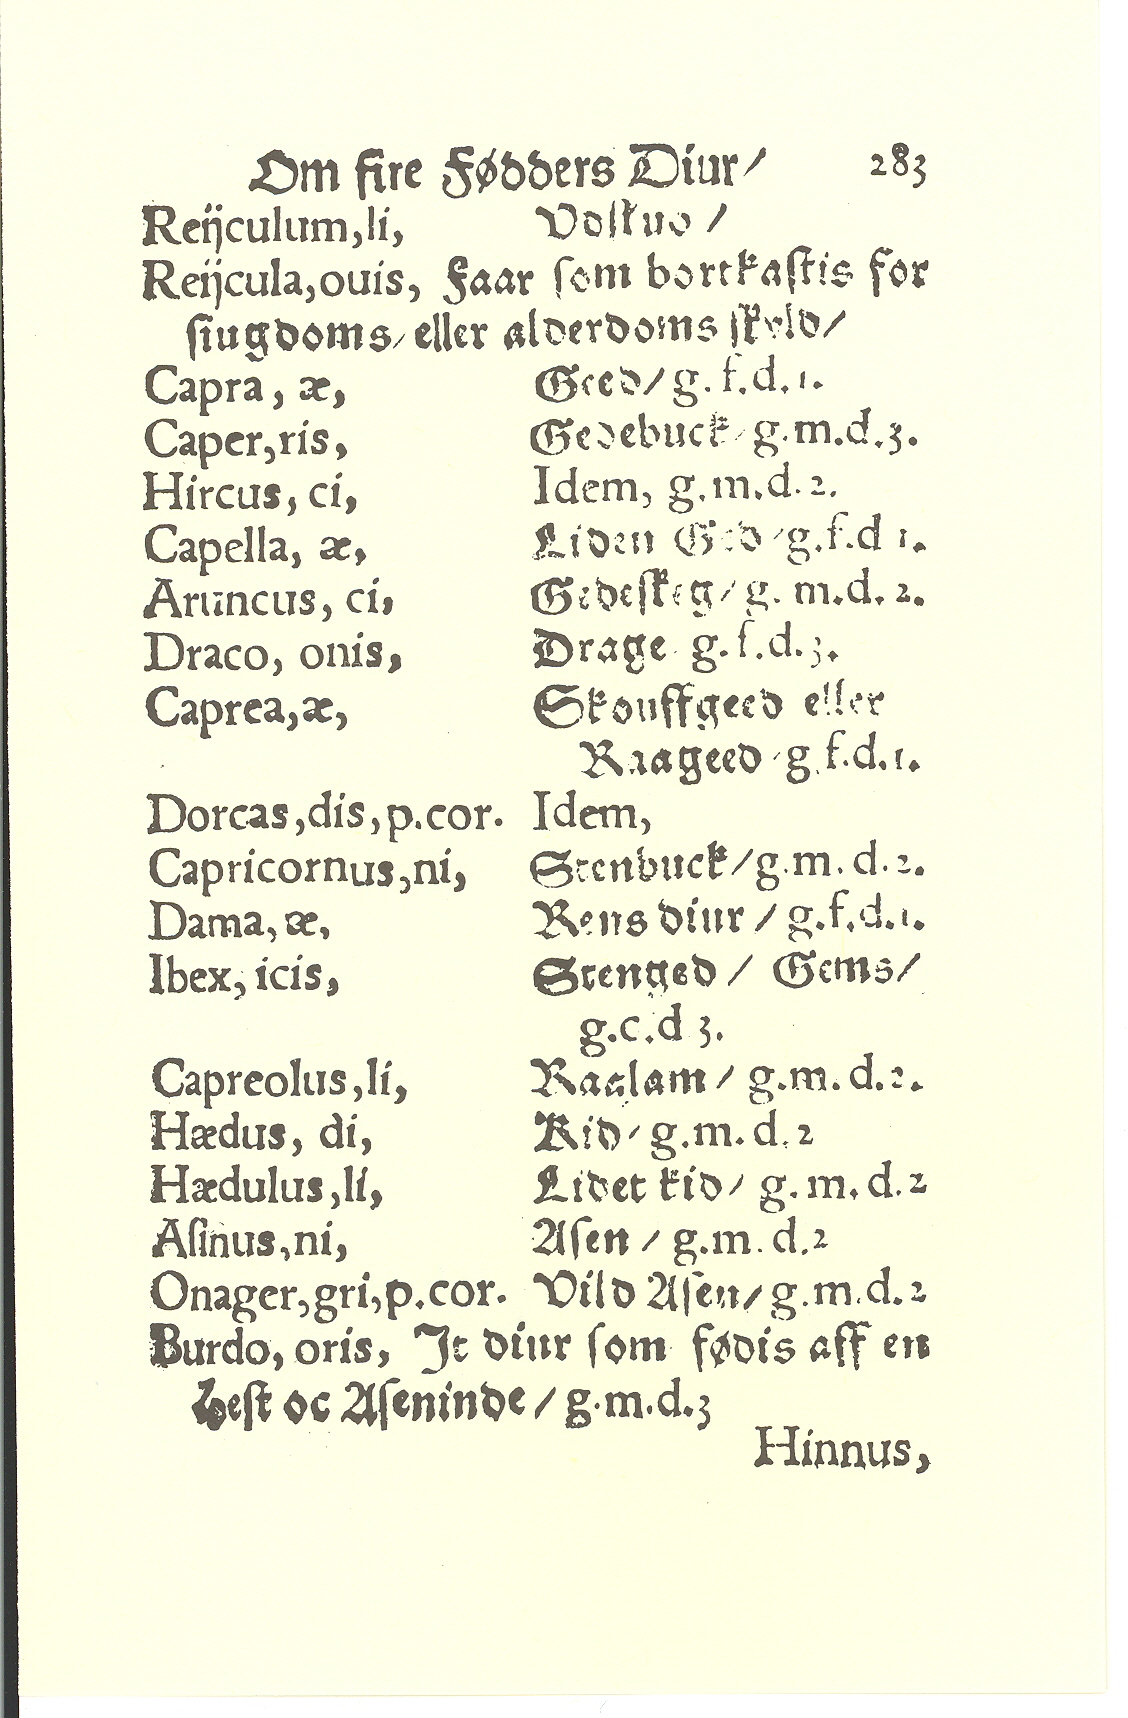 Om fire Fødders Diur/ 283
Reijculum,li,
Reijcula,ouis, Faar som bortkastis for
siugdoms/ eller alderdoms skyld/
Capra, æ, Geed/ g. f.d. 1.
Caper,ris, Gedebuck/ g.m.d.3.
Hircus, ci, Idem, g.m.d.2.
Capella, æ, Liden Ged/ g.f.d 1.
Aruncus, ci, Gedeskeg/ g. m.d. 2.
Draco, onis, Drage g.f.d.3.
Caprea,æ, Skouffgeed eller
Raageed/ g.f.d.1.
Dorcas,dis,p.cor. Idem,
Capricornus,ni, Stenbuck/g.m.d.2.
Dama,æ, Rens diur / g.f.d.1.
Ibex, icis, Stenged / Gems/
g.c.d 3.
Capreolus,li, Raalam/ g.m.d.2.
Hædus, di, Kid/ g.m.d.2
Hædulus,li, Lidet kid/ g.m.d.2
Asinus,ni, Asen / g.m.d.2
Onager,gri,p.cor. Vild Asen/ g.m.d.2
Burdo, oris, It diur som fødis aff en
Hest oc Aseninde/ g.m.d.3
Hinnus,